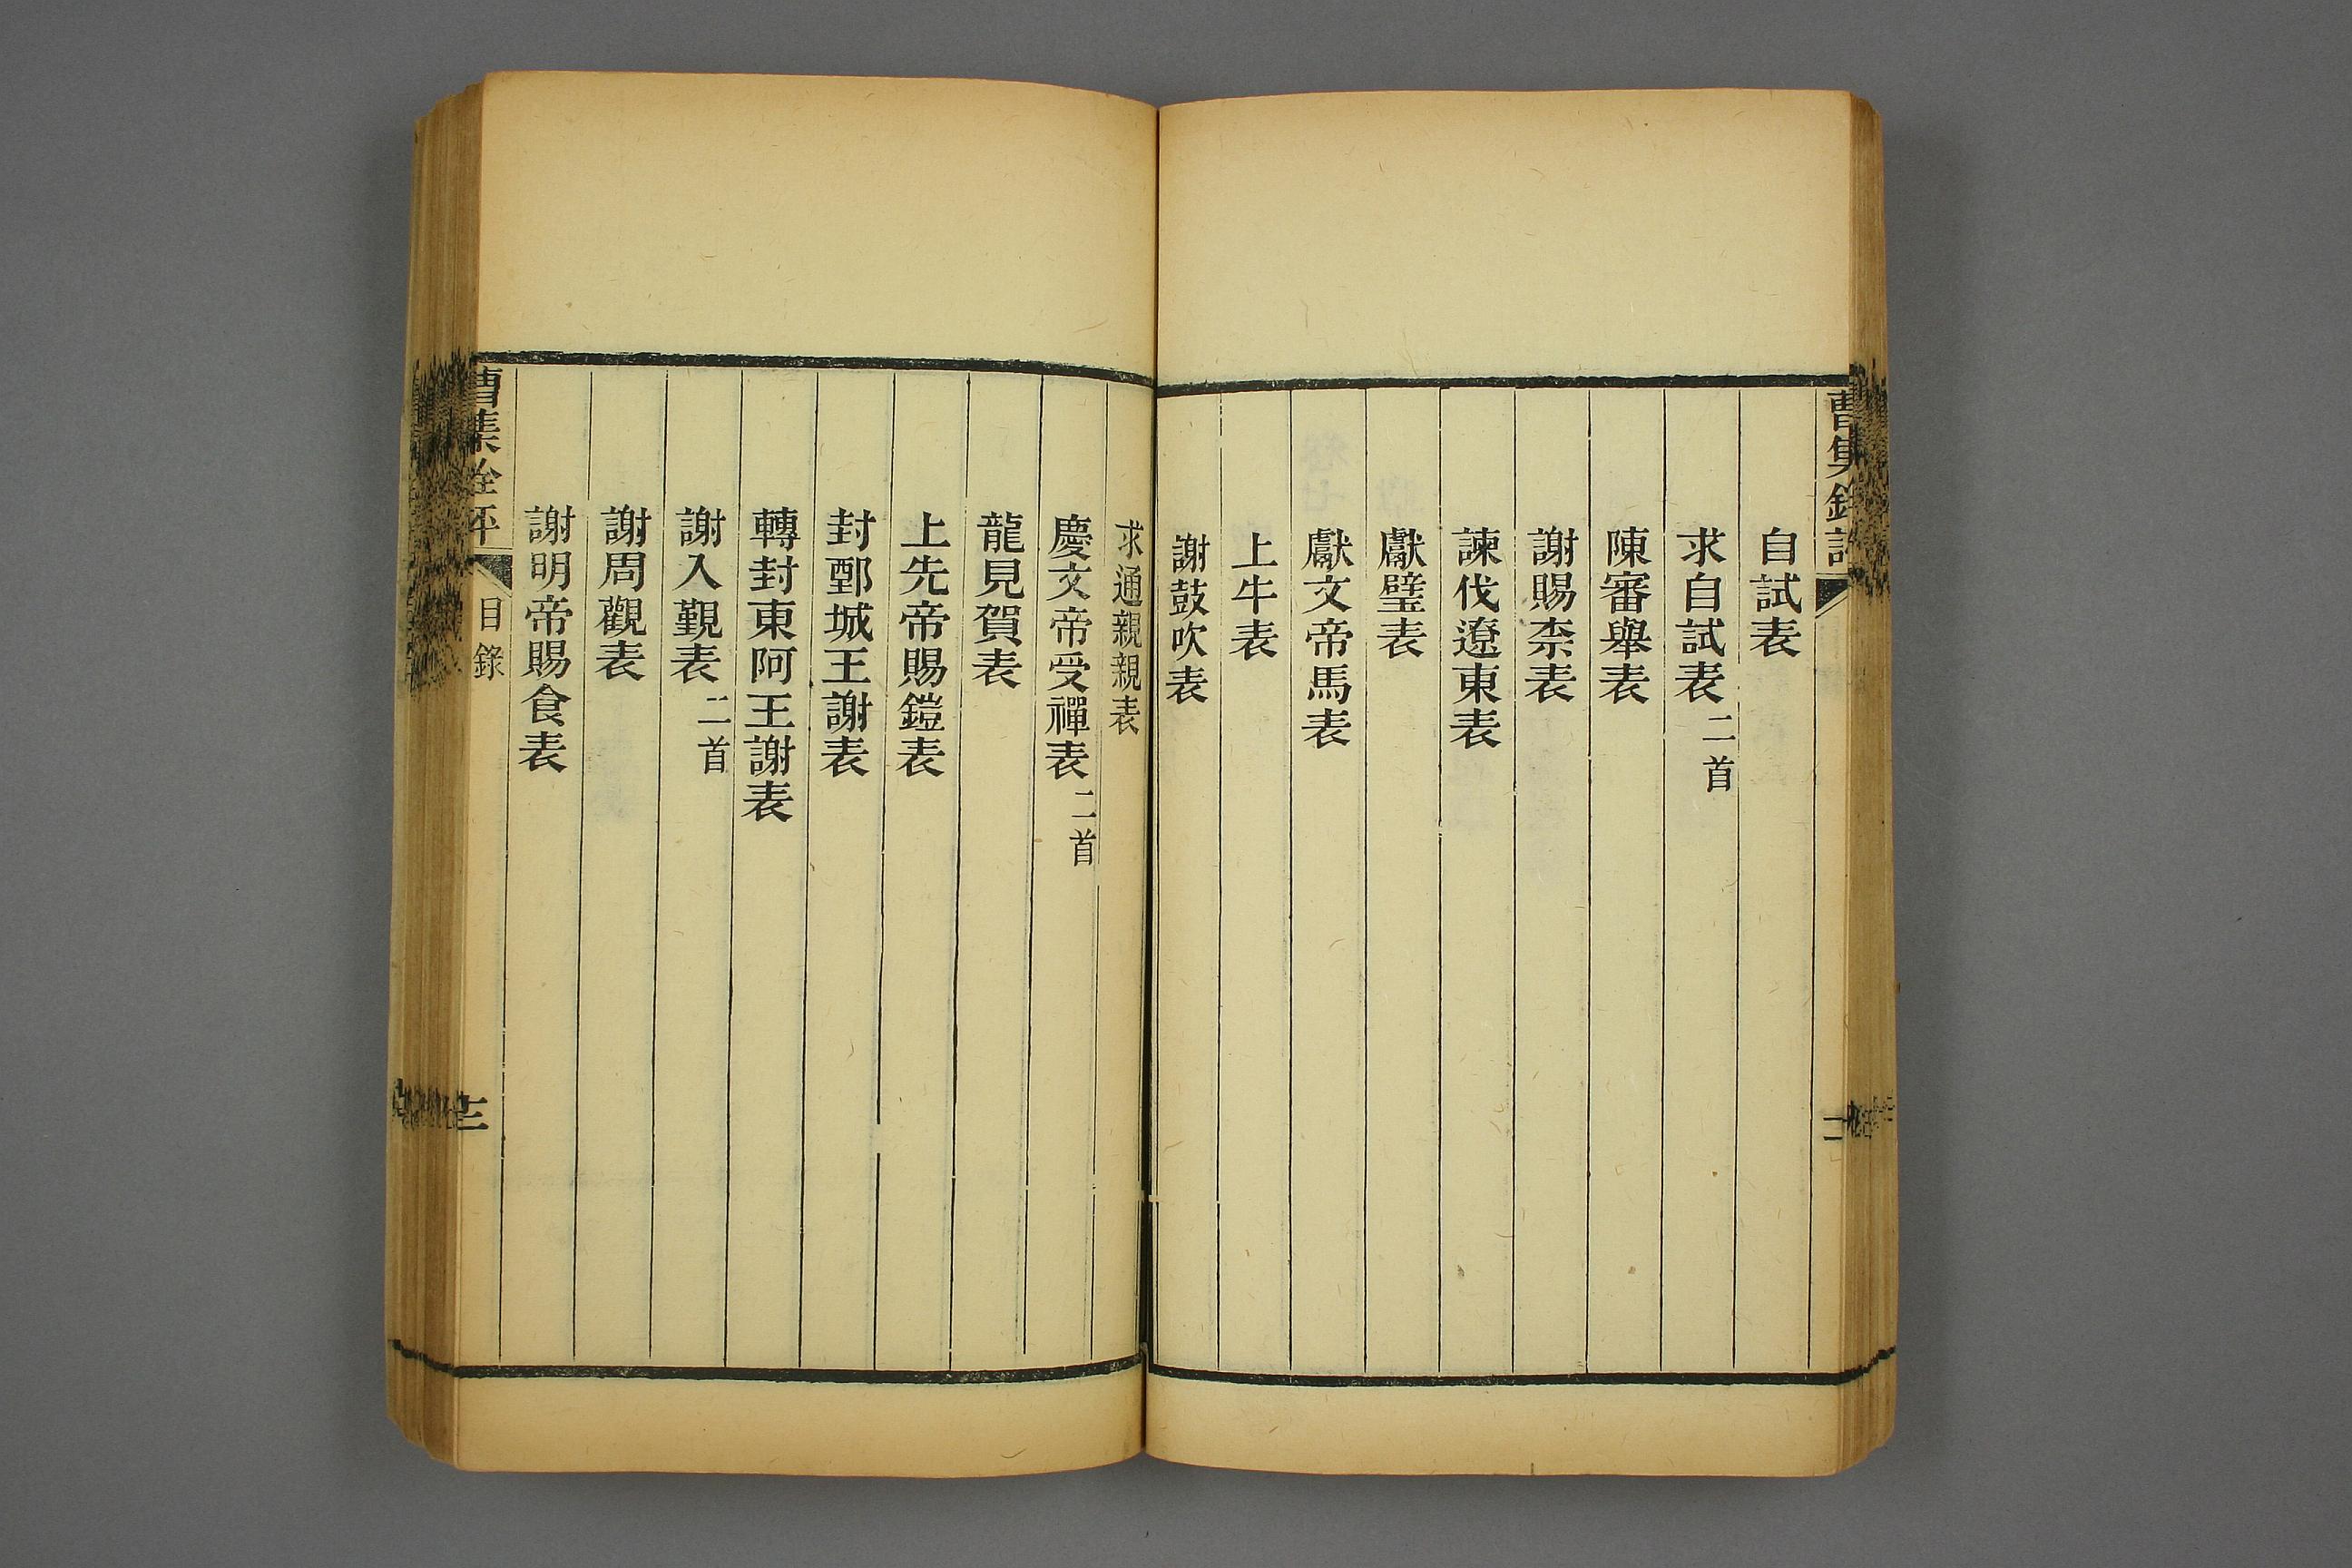 曹集銓評
自試表
求自試表二首
陳審舉表
謝賜柰表
諫伐遼東表
獻璧表
獻文帝馬表
上牛表
謝鼓吹表
求通親親表
慶文帝受禪表二首
龍見賀表
上先帝賜鎧表
封鄄城王謝表
轉封東阿王謝表
謝入覲表二首
謝周觀表
謝明帝賜食表
曹集銓評 目錄